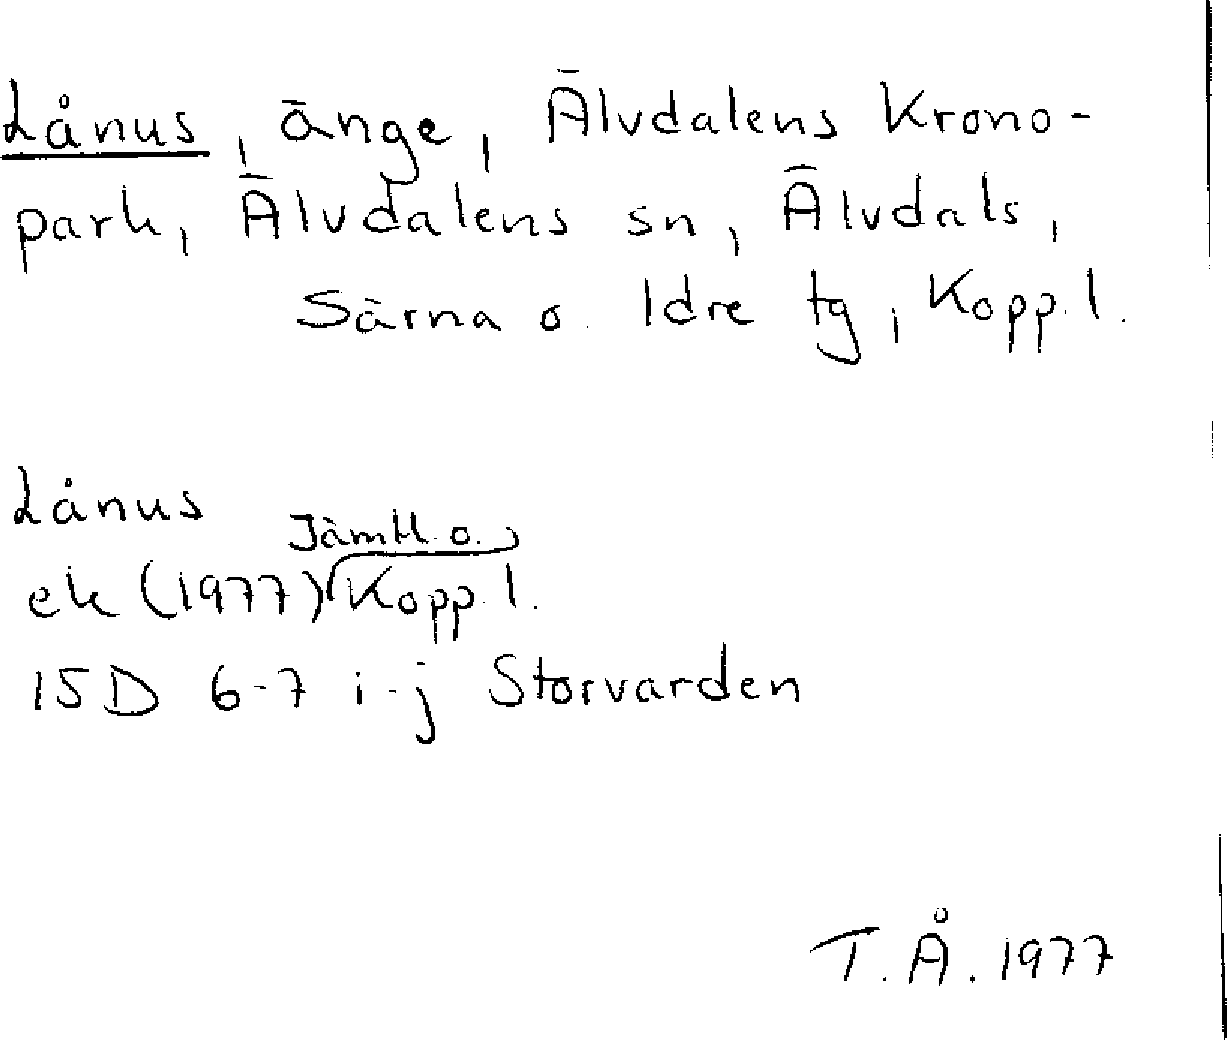 Lånus, änge, Älvdalens Krono-
park, Älvdalens sn, Älvdals,
Särna o. Idre tg, Kopp. l.
Lånus
Jämtl. o.
ek (1977) Kopp. l.
15D 6-7 i-j Storvarden
T. Å. 1977